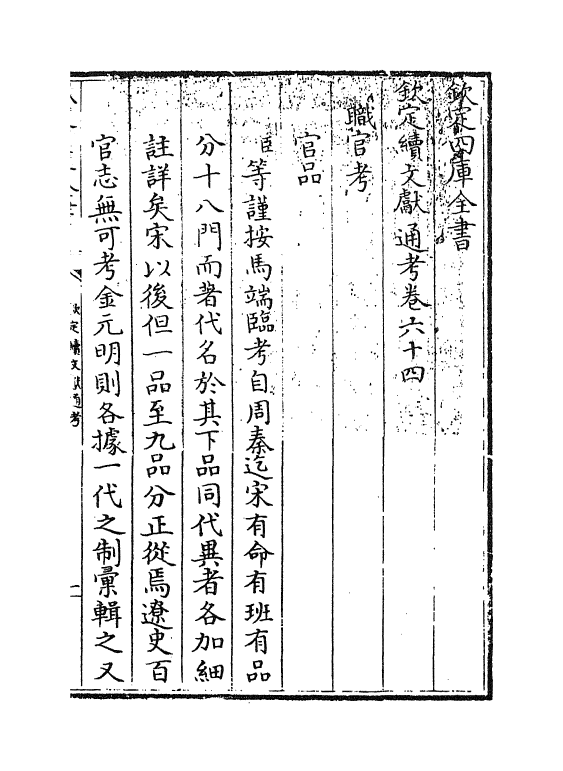 欽定四庫全書
欽定續文獻通考卷六十四
職官考
官品
臣等謹按馬端臨考自周秦迄宋有命有班有品
分十八門而著代名於其下品同代異者各加細
註詳矣宋以後但一品至九品分正從焉遼史百
官志無可考金元明則各據一代之制彙輯之又
欽定續文獻通考